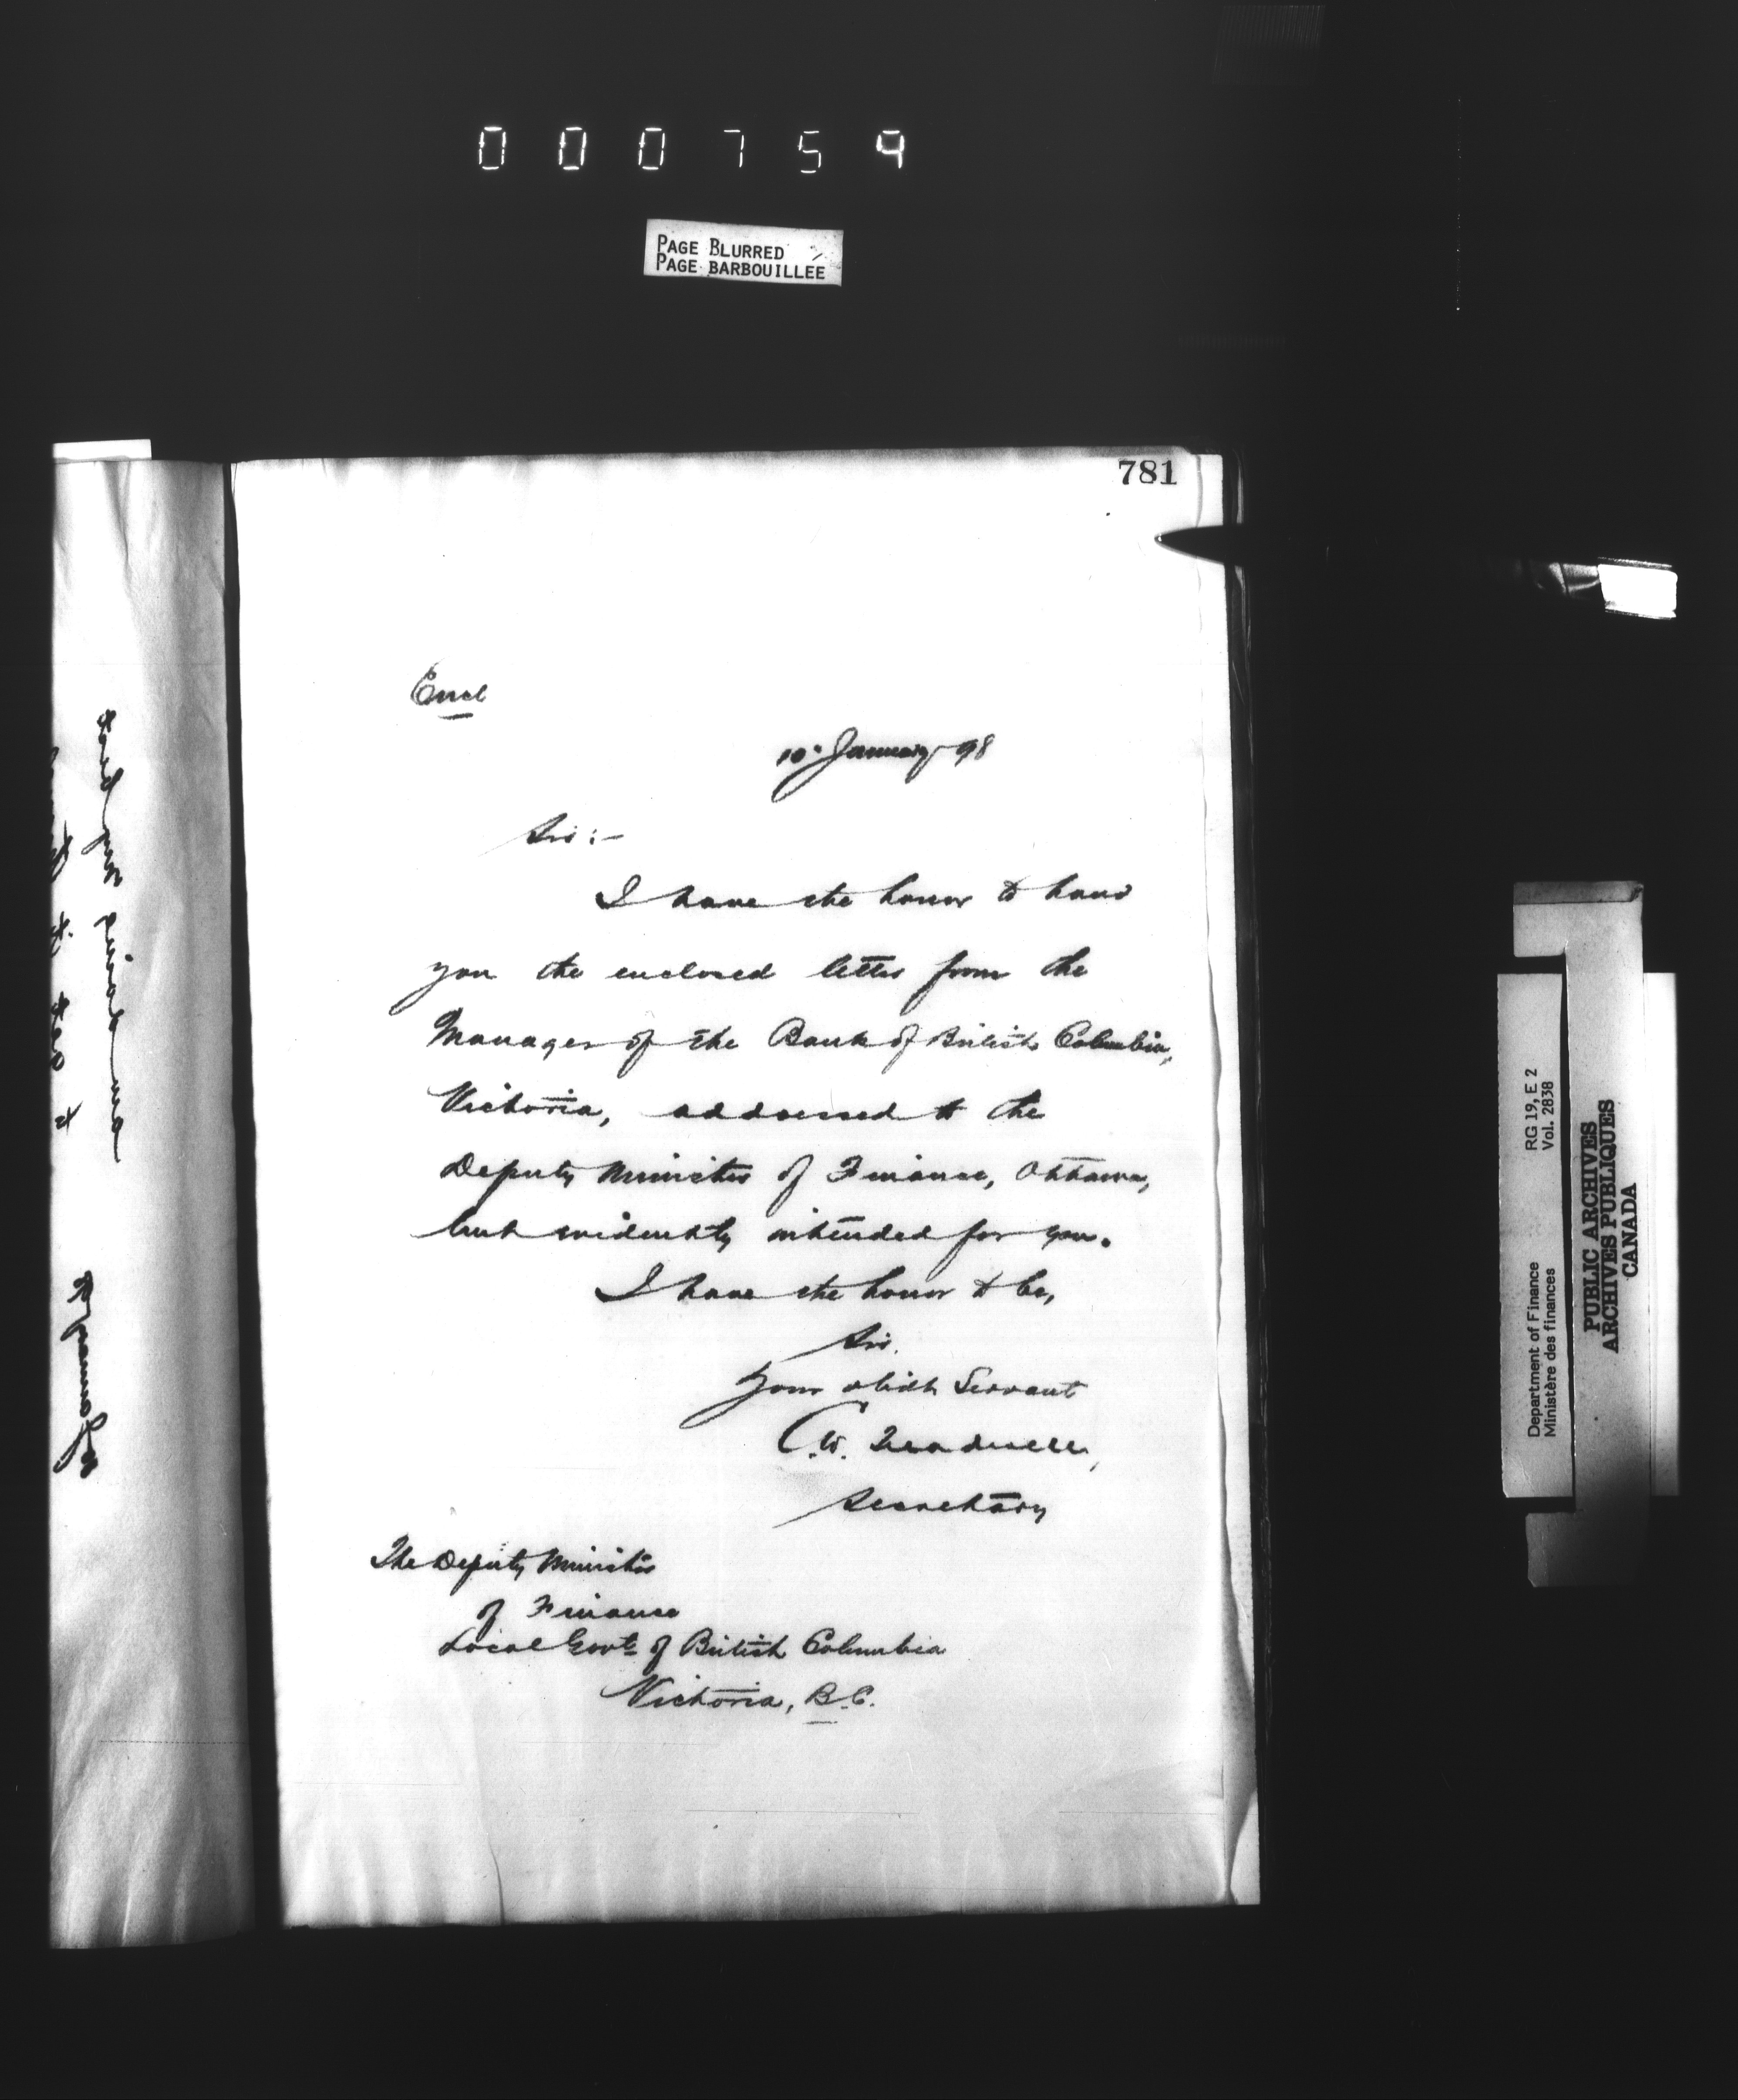 000759
PAGE BLURRED
PAGE BARBOUILLEE
781
Encl
10 January 98
Sir:—
I have the honor to hand
you the enclosed letter from the
Manager of the Bank of British Columbia,
Victoria, addressed to the
Deputy Minister of Finance, Ottawa,
but evidently intended for you.
I have the honor to be,
Sir,
Your obedt Servant
C.W. Treadwell,
Secretary
The Deputy Minister
of Finance
Local Govt of British Columbia
Victoria, B.C.
RG 19, E 2
Vol. 2838
Department of Finance
Ministère des finances
PUBLIC ARCHIVES
ARCHIVES PUBLIQUES
CANADA